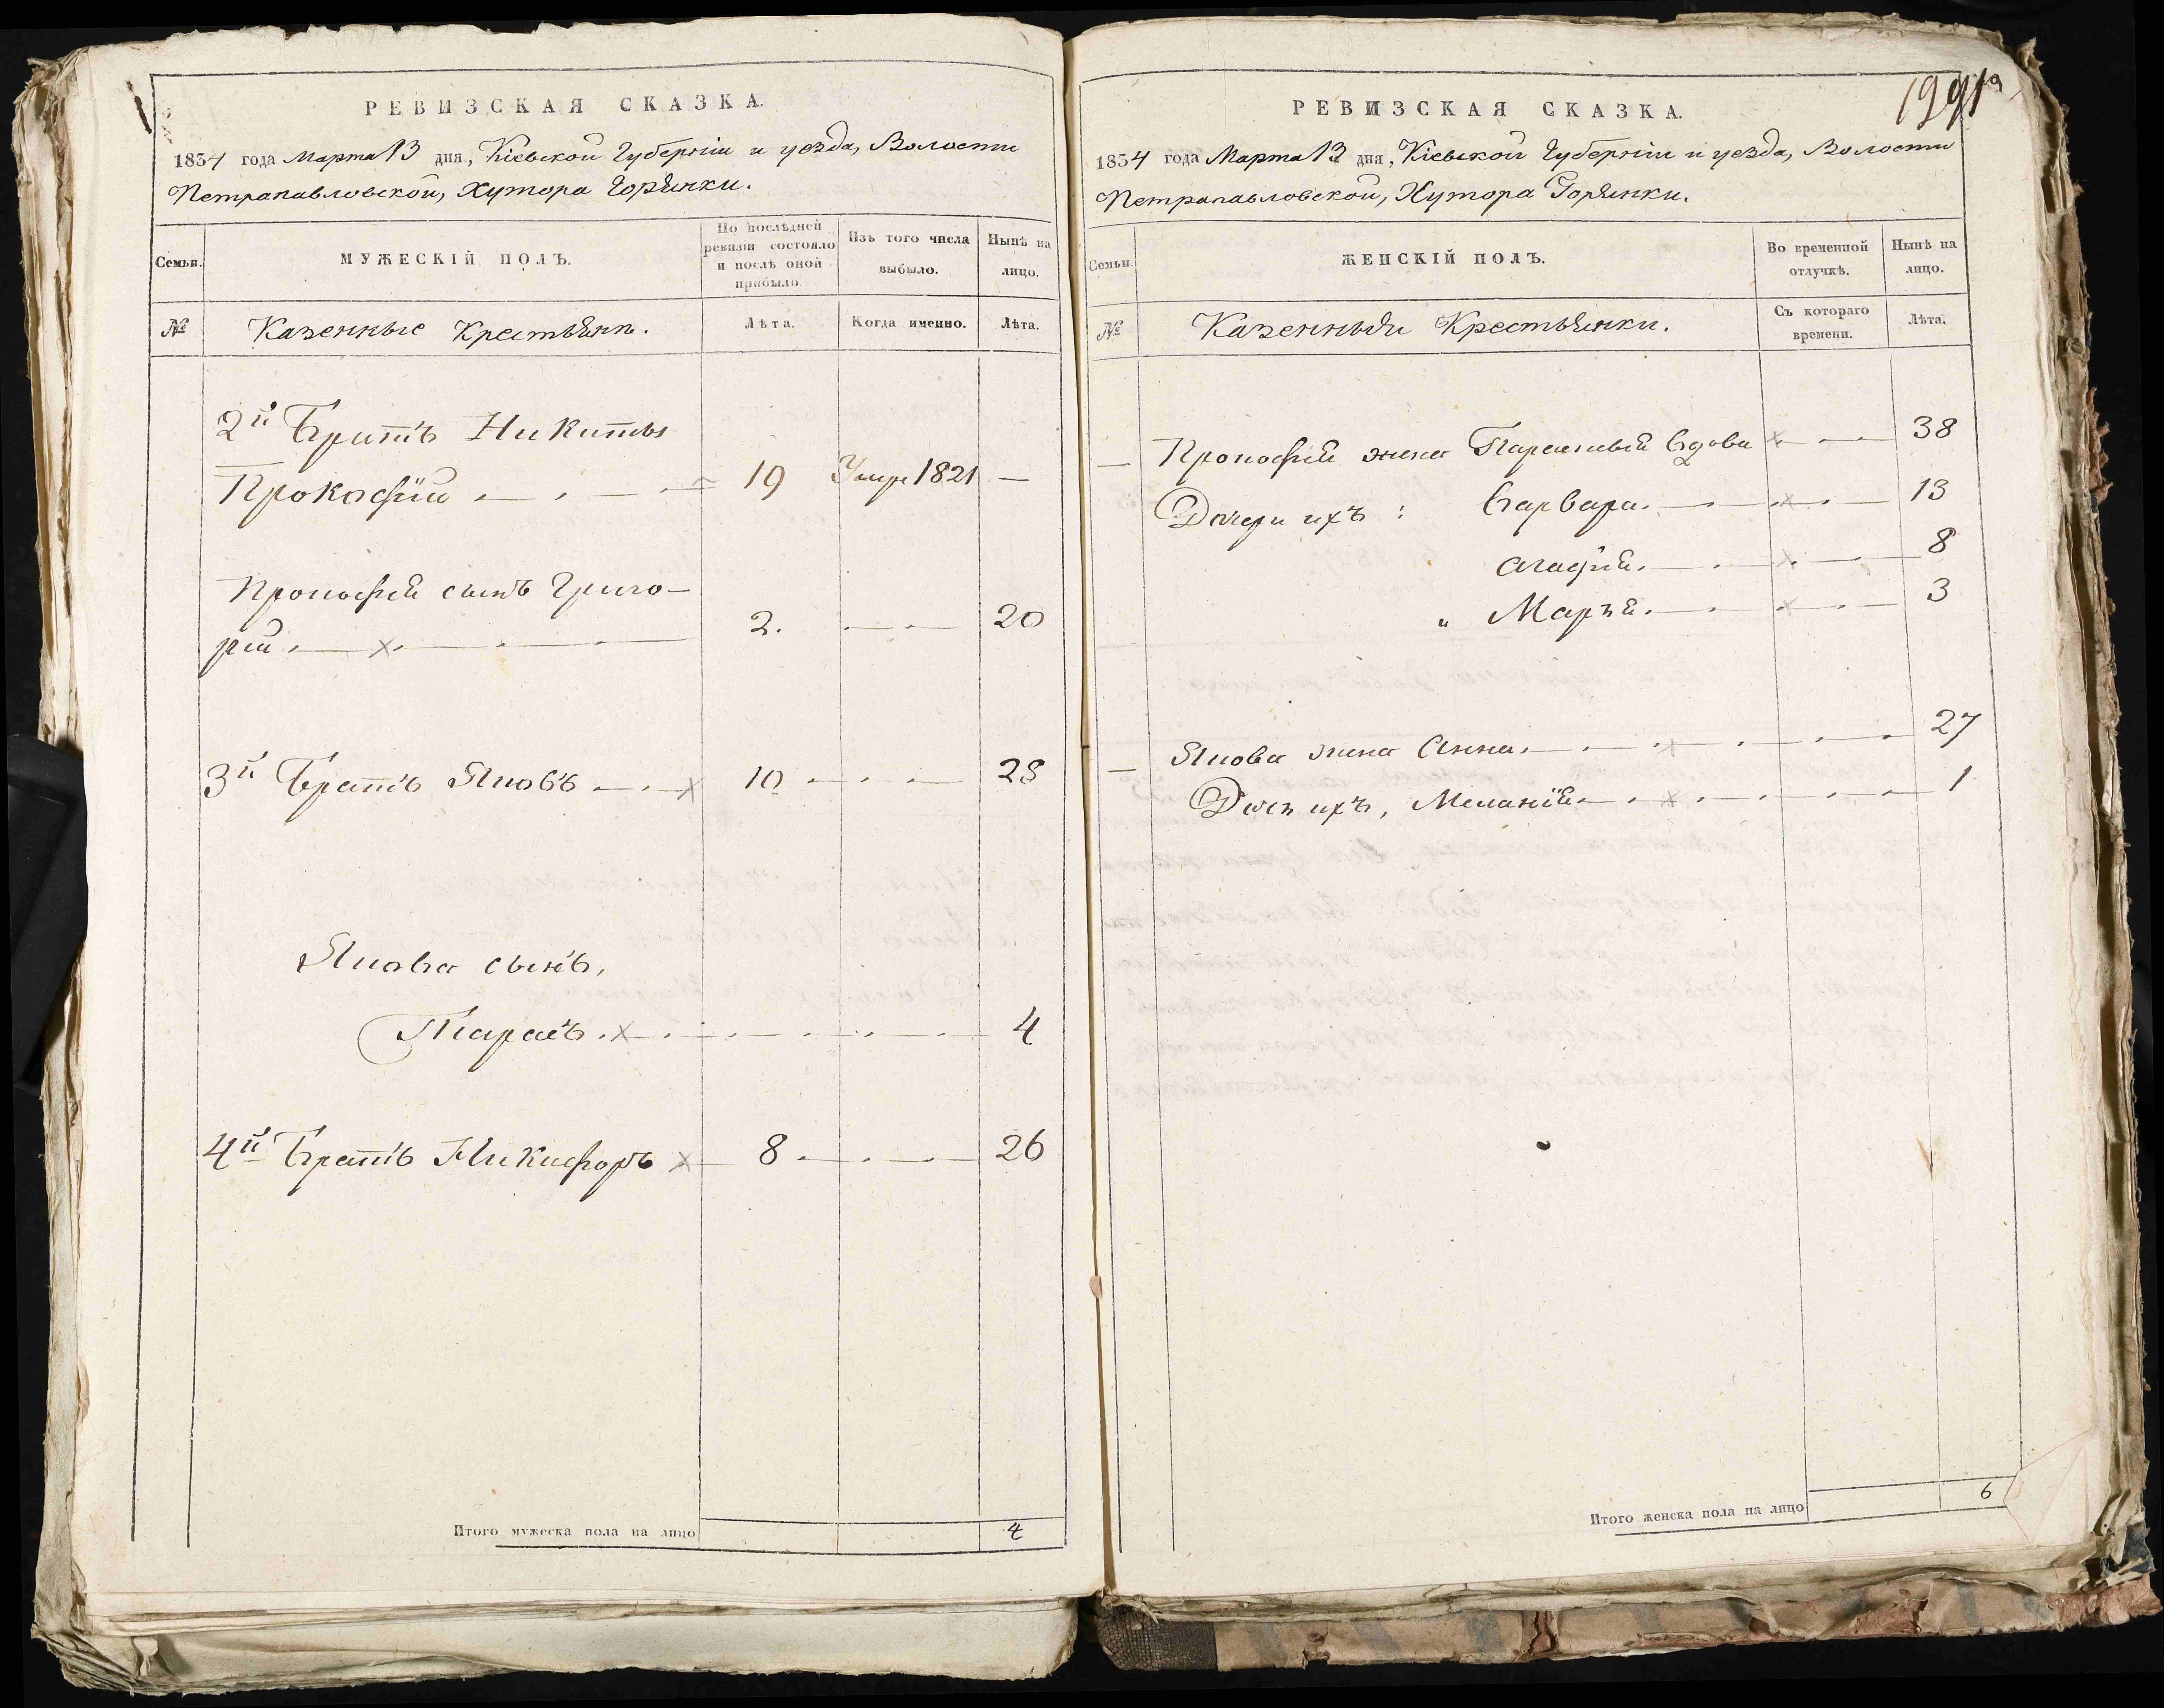 РЕВИЗСКАЯ СКАЗКА.
1834 года Марта 13 дня, Кіевской Губерніи и уезда, Волости
Петрапавловской, Хутора Горянки.
Семьи.
МУЖЕСКІЙ ПОЛЪ.
По послѣдней ревизіи состояло и послѣ оной прибыло
Изъ того числа выбыло.
Нынѣ на лицо.
№
Казенные Крестьяне.
Лѣта.
Когда именно.
Лѣта.
2й Братъ Никиты
Прокофій 19 Умре 1821 —
Прокофія сынъ Григо-
рій 2. 20
3й Братъ Яковъ 10
Якова сынъ,
Тарасъ. 4
4й Братъ Никифоръ 8 26
Итого мужеска пола на лицо 4
РЕВИЗСКАЯ СКАЗКА.
1834 года Марта 13 дня, Кіевской Губерніи и уезда, Волости
Петрапавловской, Хутора Горянки.
Семьи.
ЖЕНСКІЙ ПОЛЪ.
Во временной отлучкѣ.
Нынѣ на лицо.
№
Казенныя Крестьянки.
Съ котораго времени.
Лѣта.
Прокофія жена Параскивія вдова 38
Дочери ихъ: Варвара. 13
Агафія. 8
„ Марья. 3
Якова жена Анна. 27
Дочь ихъ, Меланія 1
Итого женска пола на лицо 6